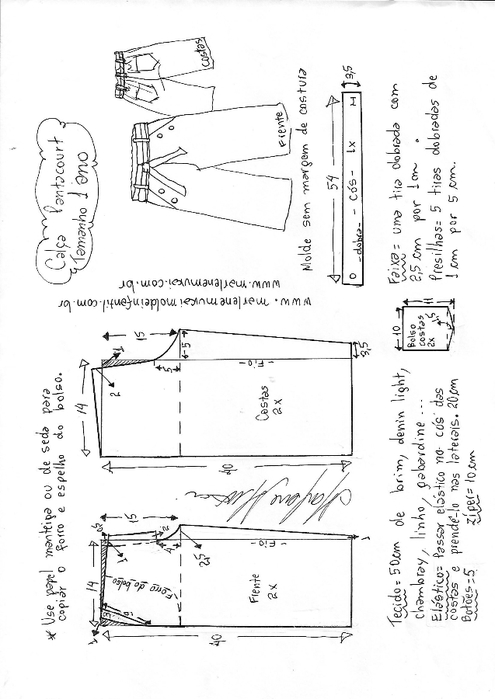 Calça Pantacourt
Tamanho 1 ano
costas
Frente
Molde sem margem de costura
www.marlenemukai.com.br
www.marlenemukaimoldeinfantil.com.br
* Use papel manteiga ou de seda para
copiar o forro e espelho do bolso.
54
3,5
-dobra- - cós- 1x
Faixa = uma tira dobrada com
2,5 cm por 1m.
Presilhas = 5 tiras dobradas de
1 cm por 5 cm.
14
2
1
15
5
5
-Fio-
3,5
Costas
2x
40
10
11
Bolso
costas
2x
1,5
14
15
Forro do bolso
-Fio-
Frente
2x
40
Tecido = 50cm de brim, denin light,
chambray, linho, gabardine...
Elástico = Passar elástico no cós das
costas e prendê-lo nas laterais. 20cm
Botões = 5
Zíper = 10cm